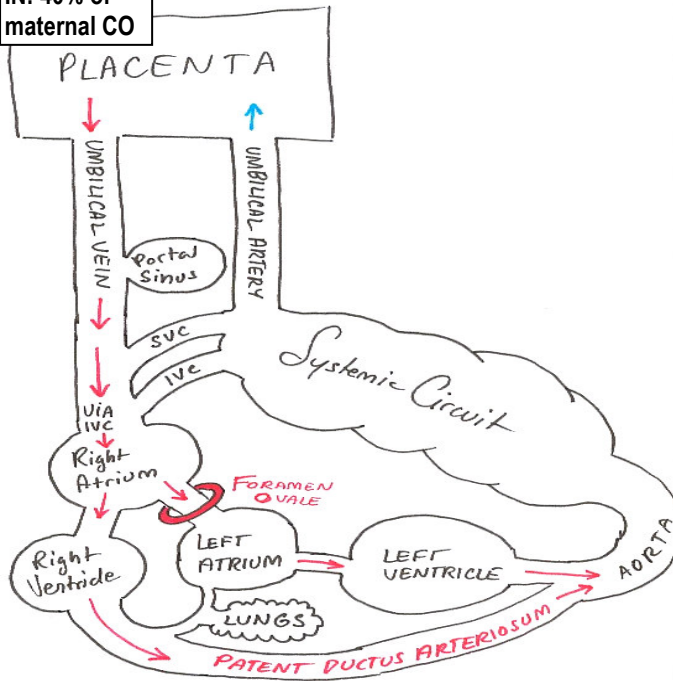 maternal CO
PLACENTA
UMBILICAL VEIN
UMBILICAL ARTERY
Portal
Sinus
SVC
IVC
Systemic Circuit
VIA
IVC
Right
Atrium
FORAMEN
OVALE
LEFT
ATRIUM
LEFT
VENTRICLE
AORTA
Right
Ventricle
LUNGS
PATENT DUCTUS ARTERIOSUM